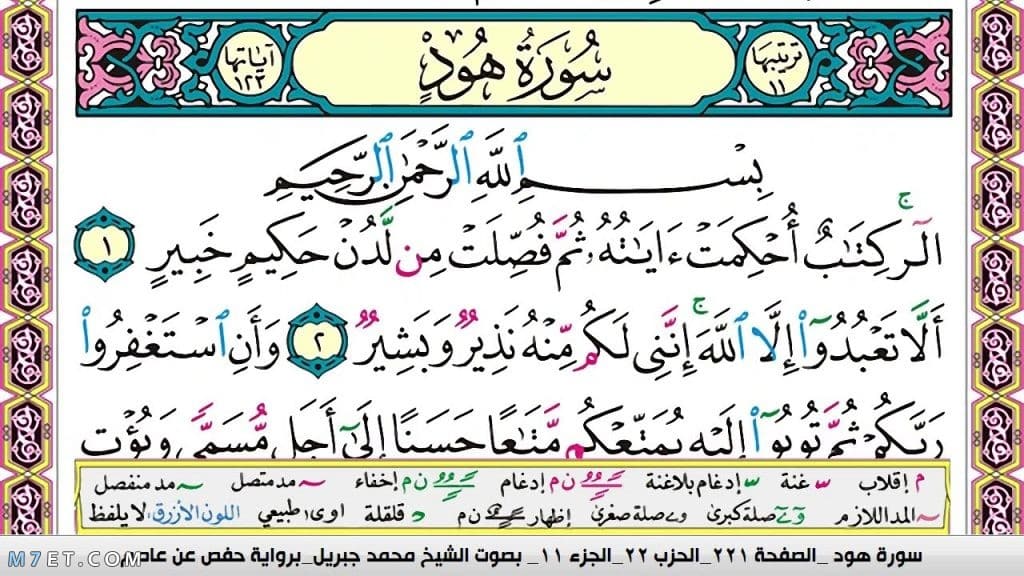 ترتيبها ١١ سُورَةُ هُودٍ آياتها ١٢٣
بِسْمِ ٱللَّهِ ٱلرَّحْمَٰنِ ٱلرَّحِيمِ
الٓر ۚ كِتَٰبٌ أُحْكِمَتْ ءَايَٰتُهُۥ ثُمَّ فُصِّلَتْ مِن لَّدُنْ حَكِيمٍ خَبِيرٍ ١
أَلَّا تَعْبُدُوٓا۟ إِلَّا ٱللَّهَ ۚ إِنَّنِى لَكُم مِّنْهُ نَذِيرٌ وَبَشِيرٌ ٢ وَأَنِ ٱسْتَغْفِرُوا۟
رَبَّكُمْ ثُمَّ تُوبُوٓا۟ إِلَيْهِ يُمَتِّعْكُم مَّتَٰعًا حَسَنًا إِلَىٰٓ أَجَلٍ مُّسَمًّى وَيُؤْتِ
م إقلاب غنة إدغام بلا غنة ن م إدغام ن م إخفاء مد متصل مد منفصل
المد اللازم صلة كبرى صلة صغرى إظهار ن م د قلقلة اوى١ طبيعي اللون الأزرق، لا يلفظ
سورة هود _الصفحة ٢٢١_الحزب ٢٢_الجزء ١١_ بصوت الشيخ محمد جبريل_برواية حفص عن عاصم
M7ET.COM